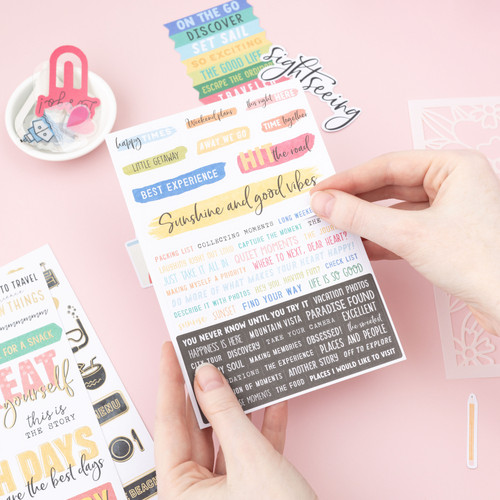 ON THE GO
DISCOVER
SET SAIL
SO EXCITING
THE GOOD LIFE
ESCAPE THE ORDINARY
TRAVELER
sightseeing
happy TIMES
Weekend plans
the right HERE
LITTLE GETAWAY
AWAY WE GO
TIME together
BEST EXPERIENCE
HIT the road
Sunshine and good vibes
PACKING LIST COLLECTING MOMENTS LONG WEEKEND
CAPTURE THE MOMENT THE
JUST TAKE IT ALL IN QUIET MOMENTS THE
MAKING MYSELF A PRIORITY WHERE TO NEXT, DEAR HEART?
DO MORE OF WHAT MAKES YOUR HEART HAPPY!
DESCRIBE IT WITH PHOTOS CHECK LIST
SUNSET FIND YOUR WAY LIFE IS SO GOOD
YOU NEVER KNOW UNTIL YOU TRY IT VACATION PHOTOS
HAPPINESS IS HERE MOUNTAIN VISTA PARADISE FOUND
DISCOVERY TAKE YOUR CAMERA EXCELLENT
MY SOUL MAKING MEMORIES OBSESSED the sweetest
THE EXPERIENCE PLACES AND PEOPLE
OF MOMENTS ANOTHER STORY OFF TO EXPLORE
MOMENTS THE FOOD PLACES I WOULD LIKE TO VISIT
TO TRAVEL
THINGS
FOR A SNACK
EAT
yourself
this is
THE STORY
DAYS
are the best days
MENU